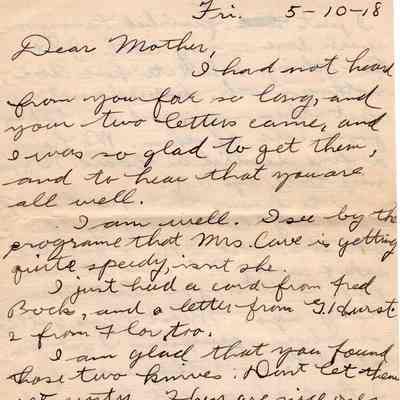 Fri. 5-10-18
Dear Mother,
I had not heard
from you for so long, and
your two letters came, and
I was so glad to get them,
and to hear that you are
all well.
I am well. I see by the
programe that Mrs. Cave is getting
quite speedy, isnt she.
I just had a card from Fred
Bock, and a letter from G. Hurst.
2 from Flor, too.
I am glad that you found
those two knives. Dont let them
get rusty. They are